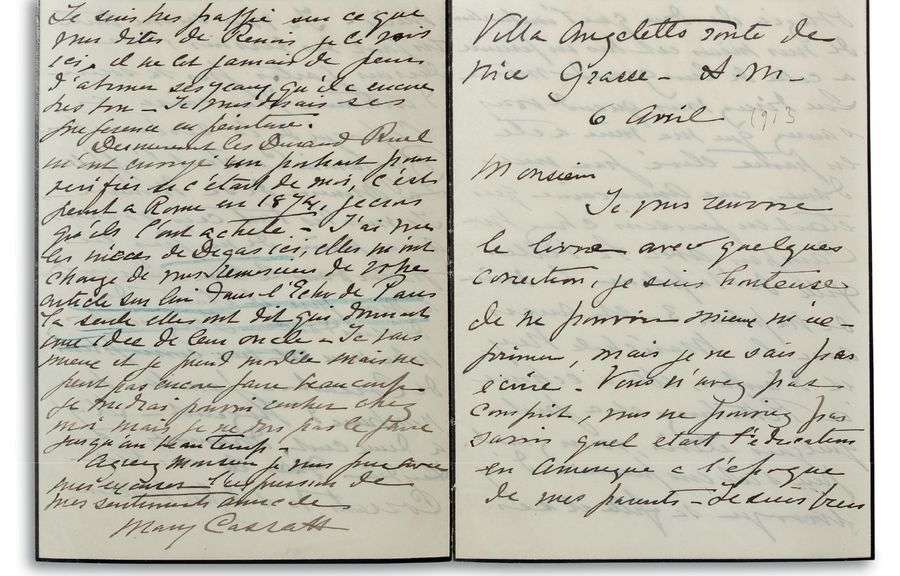 Je suis tres sur ce que
vous dites de Renoir je le vois
ici. il ne lit jamais de peur
d'abimer ses yeux qu'il a encore
tres bon — Je vous dirais ses
preference en peinture.
Dernierement les Durand Ruel
m'ont envoyé un portrait pour
verifier si c'était de moi, c'est
peint a Rome en 1874, je crois
qu'ils l'ont acheté. — J'ai vu
les nieces de Degas ici, elles m'ont
chargé de vous remercier de votre
article sur lui dans l'Echo de Paris
la seule elles ont dit qui donnait
une idee de leur oncle — Je vais
mieux et je prend modèle mais ne
peut pas encore faire beaucoup
Je voudrai pouvoir rentrer chez
moi mais je ne dois pas le faire
jusqu'au beau temps —
Agreez monsieur je vous prie avec
mes excuses l'expression de
mes sentiments
Mary Cassatt
Villa Angeletto route de
Nice Grasse — A.M —
6 Avril 1913
Monsieur
Je vous renvoie
le livre avec quelques
correction, je suis honteuse
de ne pouvoir mieux m'ex-
primer, mais je ne sais pas
écrire — Vous n'avez pas
compris, vous ne pouviez pas
savoir quel etait l'éducation
en Amerique a l'époque
de mes parents — Je suis bien